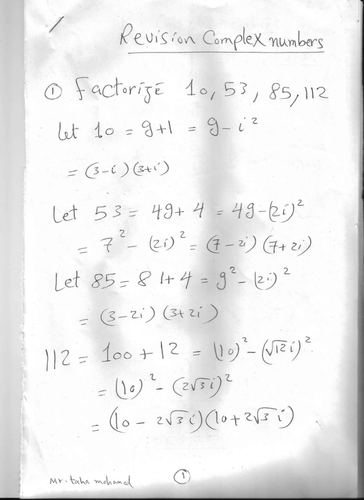 Revision Complex numbers
① Factorize 10, 53, 85, 112
let 10 = 9+1 = 9-i²
= (3-i)(3+i)
Let 53 = 49+4 = 49-(2i)²
= 7² - (2i)² = (7-2i)(7+2i)
Let 85 = 81+4 = 9²-(2i)²
= (3-2i)(3+2i)
112 = 100+12 = (10)²-(√12i)²
= (10)² - (2√3i)²
= (10 - 2√3i)(10+2√3i)
Mr. taha mohamed ①